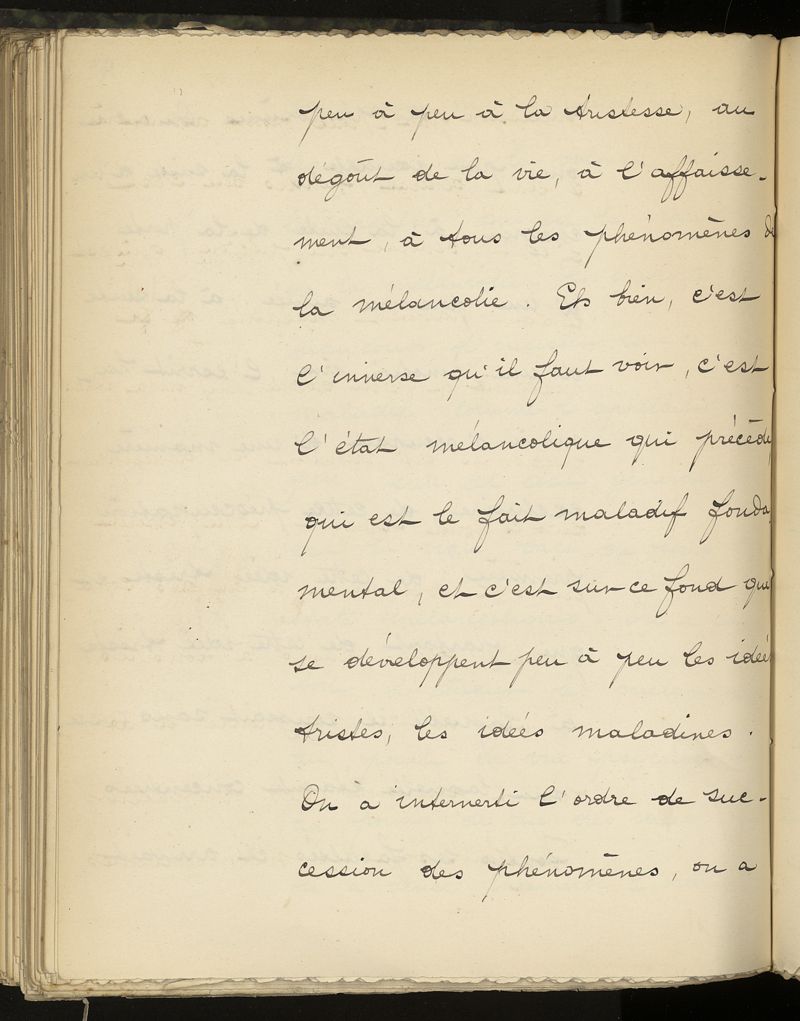 peu à peu à la tristesse, au
dégoût de la vie, à l'affaisse-
ment, à tous les phénomènes de
la mélancolie. Eh bien, c'est
l'inverse qu'il faut voir, c'est
l'état mélancolique qui précède,
qui est le fait maladif fonda-
mental, et c'est sur ce fond que
se développent peu à peu les idées
tristes, les idées maladives.
On a interverti l'ordre de suc-
cession des phénomènes, on a